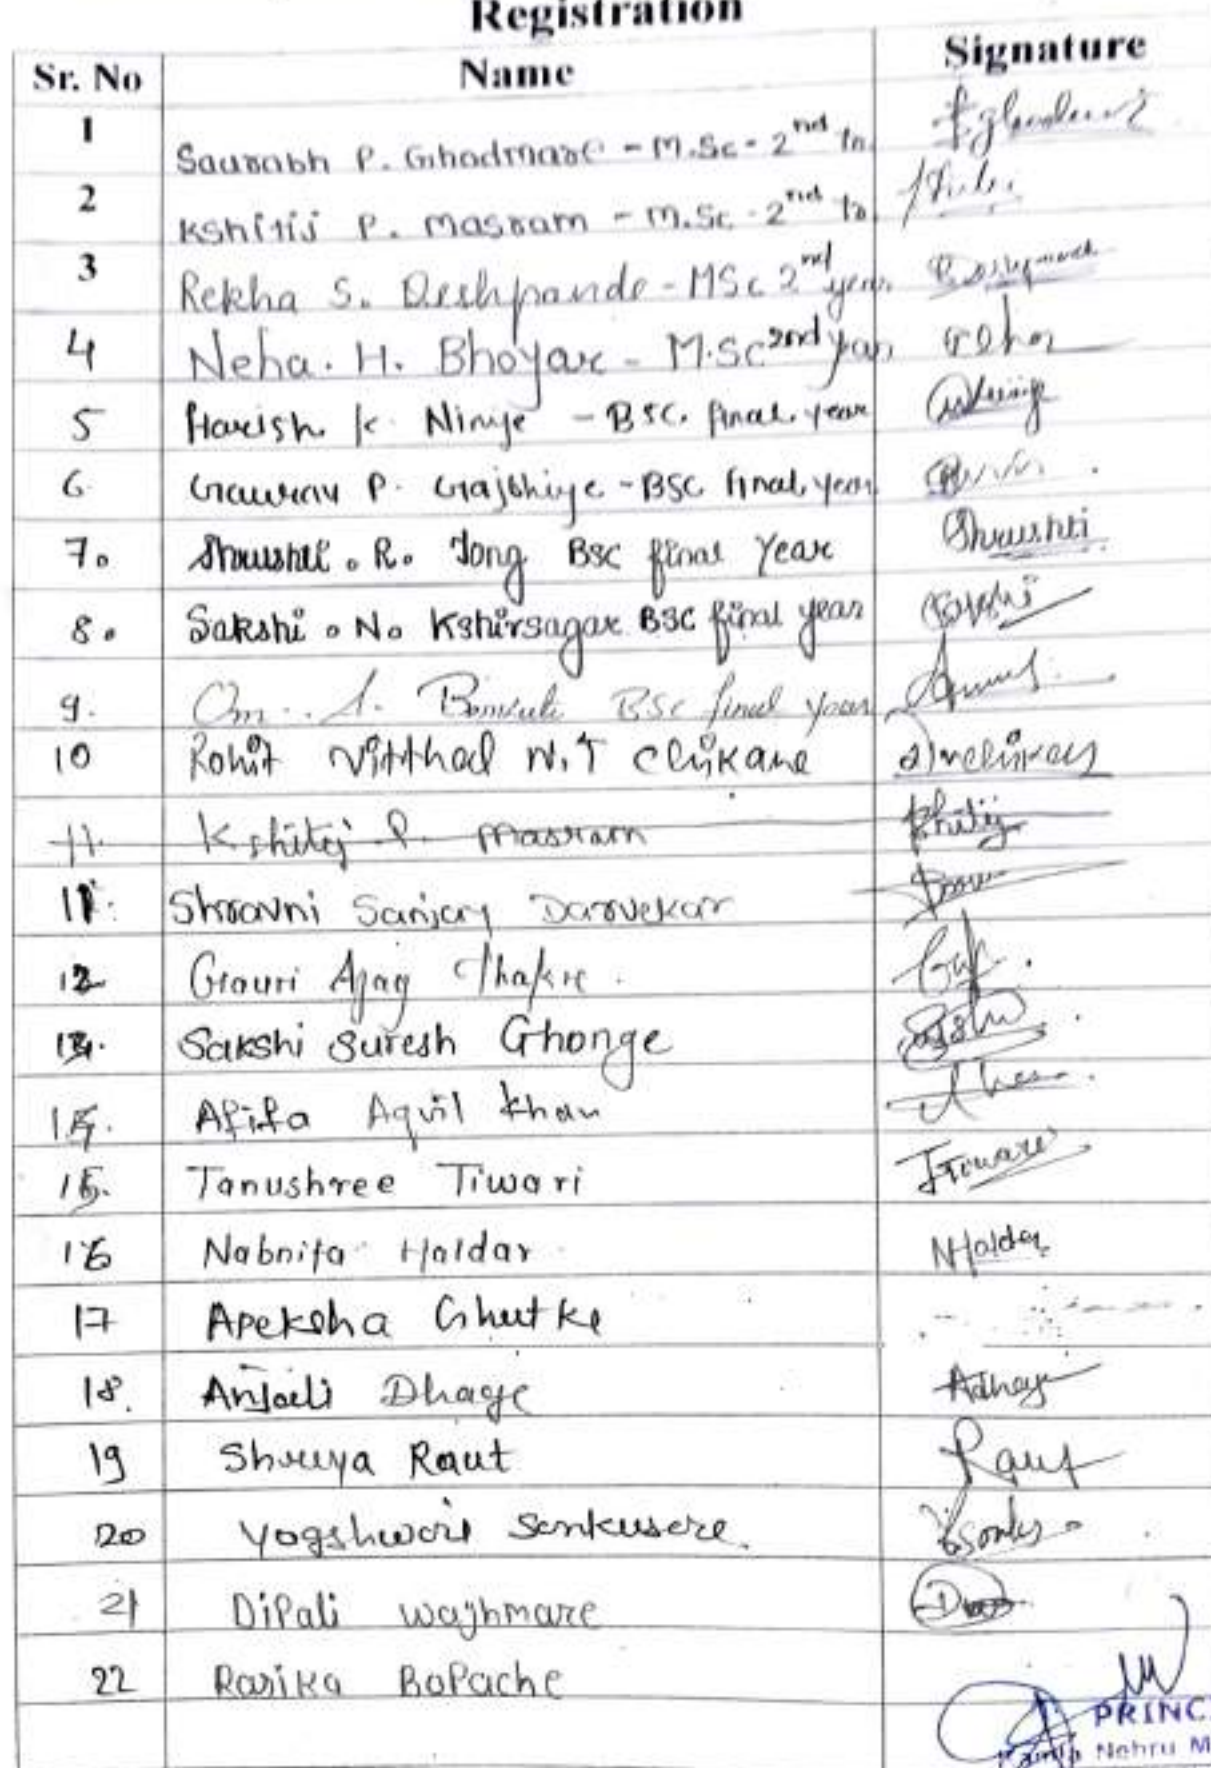 Registration
Sr. No Name Signature
1 Saurabh P. Ghodmare - M.Sc - 2nd
2 Kshitij P. Masram - M.Sc - 2nd
3 Rekha S. Deshpande - MSc 2nd year
4 Neha. H. Bhoyar - M.Sc 2nd year
5 Harish K. Nimje - BSC. final year
6. Gaurav P. Gajbhiye - BSC final year
7. Shrushti. R. Tong BSC final Year Shrushti
8. Sakshi. N. Kshirsagar BSC final year
9. Om. BSc final year
10 Rohit Vitthal N.T Chikane
11. Kshitij P. Masram Kshitij
11. Shravni Sanjay Darvekar
12 Gauri Ajay Thakre.
13. Sakshi Suresh Ghonge
14. Afifa Aqvil Khan
15. Tanushree Tiwari TTiwari
16 Nabnita Haldar NHaldar
17 Apeksha Ghutke
18. Anjali Dhage ADhage
19 Shreya Raut Raut
20 Yogshwori Sonkusare.
21 DiPali waghmare
22 Rasika BoPache
PRINC
Kamla Nehru M